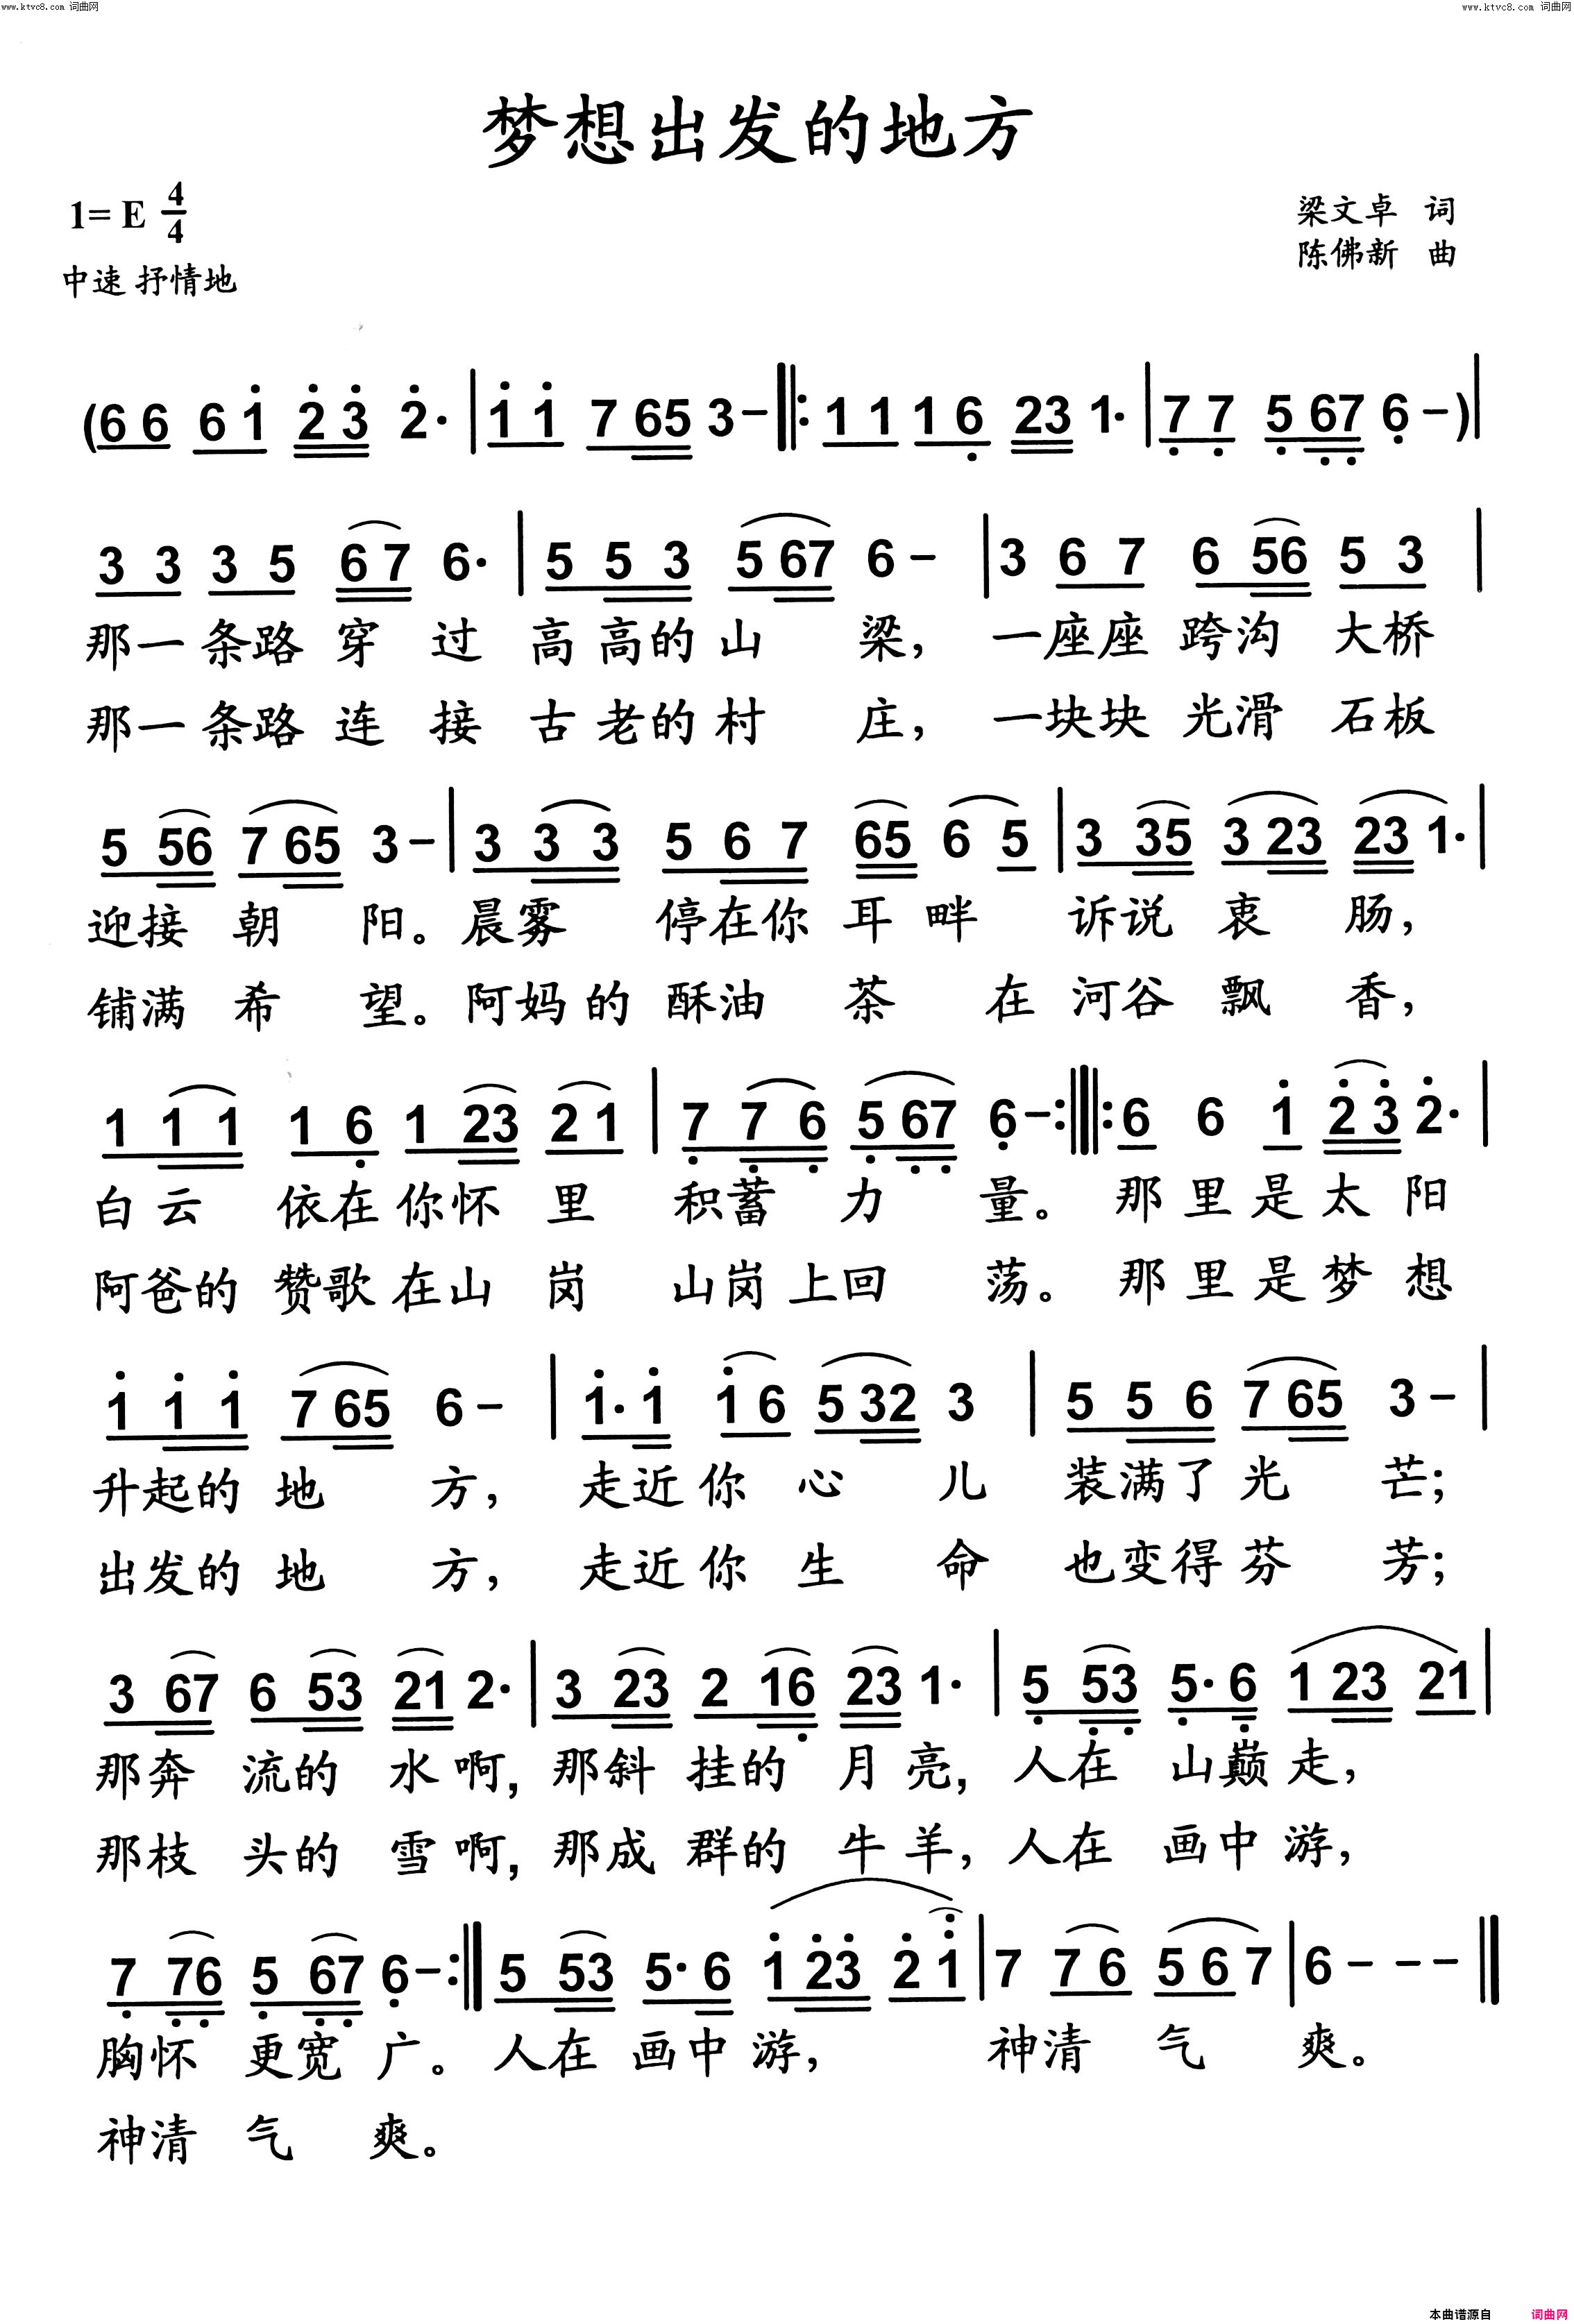 www.ktvc8.com 词曲网 www.ktvc8.com 词曲网
梦想出发的地方
1=E 4/4 梁文卓 词
中速 抒情地 陈佛新 曲
(66 61̇ 2̇3̇ 2̇· | 1̇1̇ 765 3– |: 11 16̣ 23 1· | 7̣7̣ 5̣6̣7̣ 6̣–)|
33 35 67 6· | 553 567 6– | 3 67 656 53 |
那一条路 穿 过 高高的山 梁， 一座座 跨沟 大桥
那一条路 连 接 古老的村 庄， 一块块 光滑 石板
556 765 3– | 333 567 65 6 5 | 335 323 23 1· |
迎接 朝 阳。晨雾 停在你 耳畔 诉说 衷 肠，
铺满 希 望。阿妈的 酥油 茶 在 河谷 飘 香，
111 16̣ 123 21 | 7̣7̣6̣ 5̣6̣7̣ 6̣– :|: 6 6 1̇ 2̇3̇ 2̇· |
白云 依在你怀 里 积蓄 力 量。 那里是太 阳
阿爸的 赞歌在山 岗 山岗上回 荡。 那里是梦 想
1̇1̇1̇ 765 6– | 1̇·1̇ 1̇6 532 3 | 556 765 3– |
升起的 地 方， 走近你 心 儿 装满了光 芒；
出发的 地 方， 走近你 生 命 也变得芬 芳；
367 653 21 2· | 323 216̣ 23 1· | 5̣5̣3̣ 5̣·6̣ 123 21 |
那奔 流的 水啊，那斜 挂的 月亮，人在 山巅走，
那枝 头的 雪啊，那成 群的 牛羊，人在 画中游，
7̣7̣6̣ 5̣6̣7̣ 6̣– :| 553 5·6 1̇2̇3̇ 2̇1̇ | 7 76 567 | 6– – – ‖
胸怀 更宽 广。人在 画中游， 神清 气 爽。
神清 气 爽。
本曲谱源自 词曲网